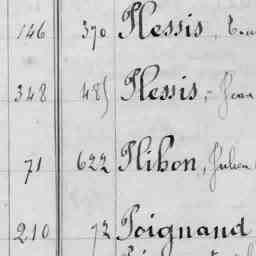 146 370 Plessis,
348 485 Plessis, Jean
71 622 Plihon, Julien
210 72 Poignand